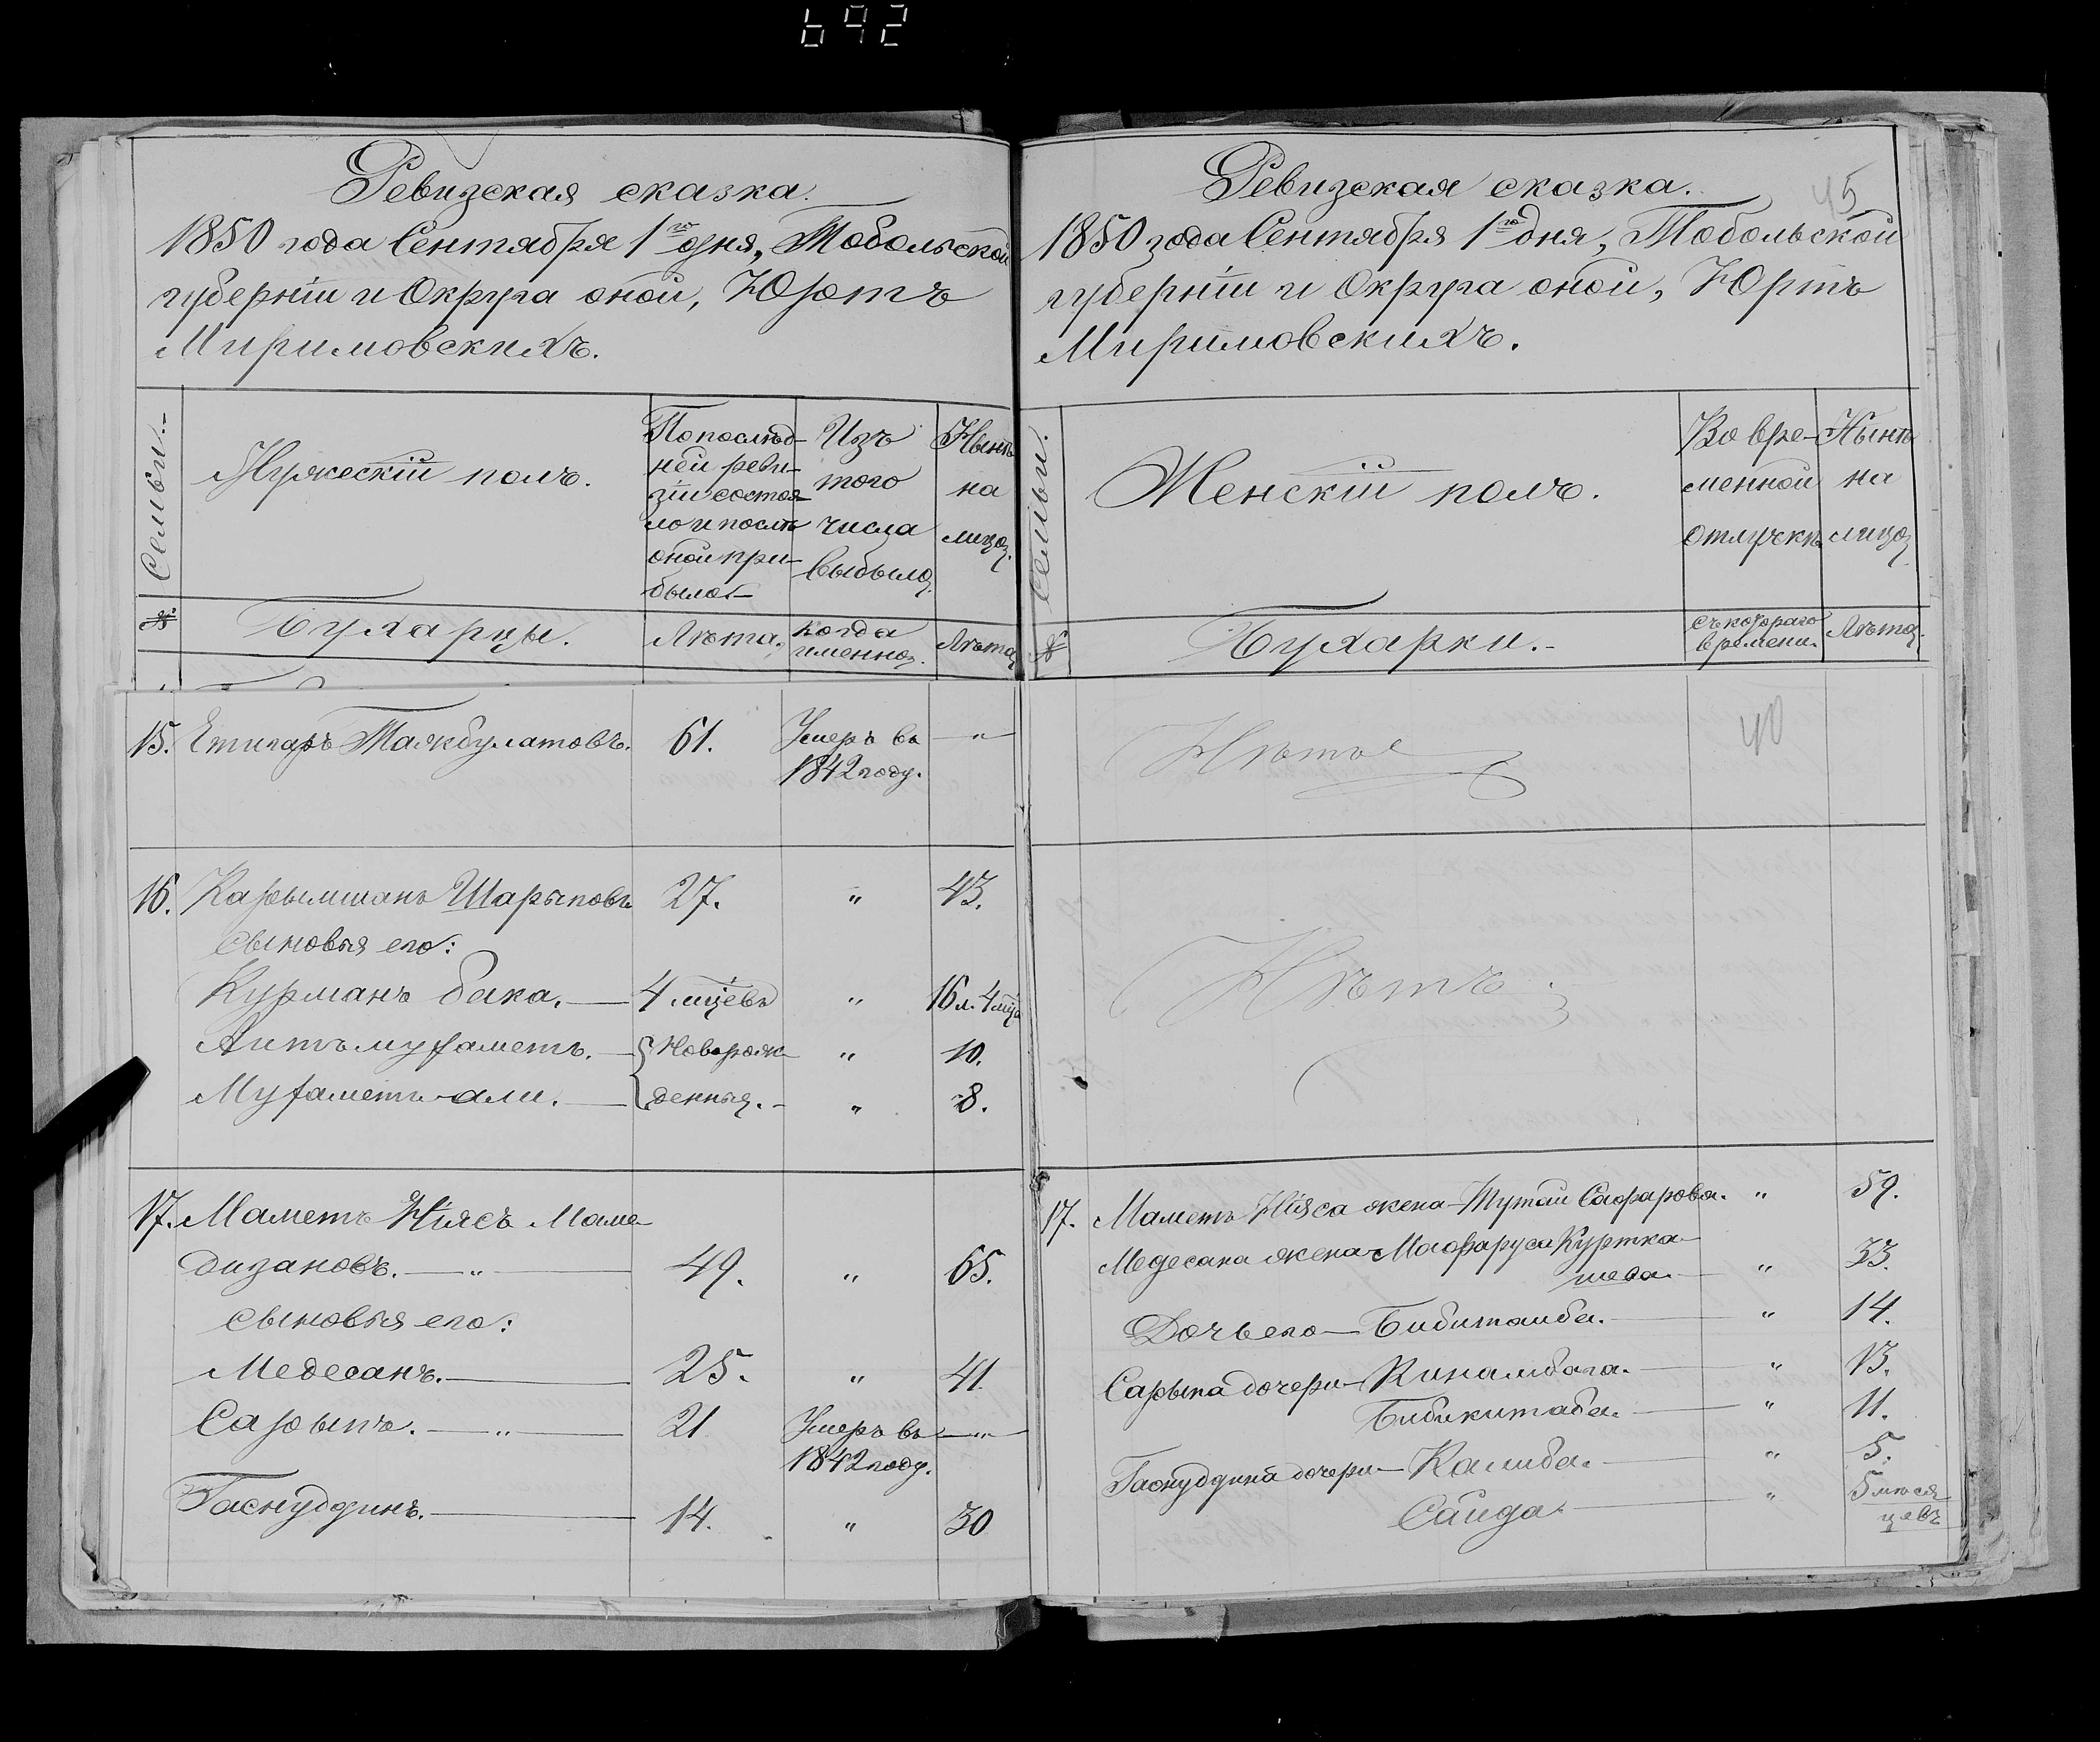 692
Ревизская сказка.
1850 года Сентября 1го дня, Тобольской
губернiи и Округа оной, Юртъ
Миримовскихъ.
Семьи.
Мужескiй полъ.
По послѣд-
ней реви-
зiи состоя
ло и послѣ
оной при-
было
Изъ
того
числа
выбыло.
Нынѣ
на
лицо.
№
Бухарцы.
Лѣта.
когда
именно.
Лѣта.
15. Етигаръ Таякбулатовъ. 61. Умеръ въ — " —
1842 году.
16. Карымшанъ Шарыповъ 27. " 43.
сыновья его:
Курманъ бака. — 4 мцевъ " 16 л. 4 мца
Аитъмухаметъ. — Новорож- " 10.
Мухаметъ-али. — денныя. - " 8.
17. Маметъ Нiясъ Маме-
дизановъ. — " — 49. " 65.
сыновья его:
Медесанъ. — 25. " 41.
Сарыпъ. — " — 21 Умеръ въ — " —
1842 году.
Гаснуддинъ. — 14. " 30
45
Ревизская сказка.
1850 года Сентября 1го дня, Тобольской
губернiи и Округа оной, Юртъ
Миримовскихъ.
Семьи.
Женскiй полъ.
Во вре-
менной
отлучкѣ
Нынѣ
на
лицо
№
Бухарки. -
съ котораго
времени.
Лѣта.
40
Нѣтъ
Нѣтъ.
17. Маметъ Нiяса жена - Тутай Сафарова. " 59.
Медесана жена - Мафаруса Куртка-
шева. — " 33.
Дочь его — Бибитаиба. — " 14.
Сарыпа дочери - Кинамбага. — " 13.
Бибикитаба. — " 11.
Гаснуддина дочери - Калиба. — " 5.
Саида. — " 5 мѣся
цевъ